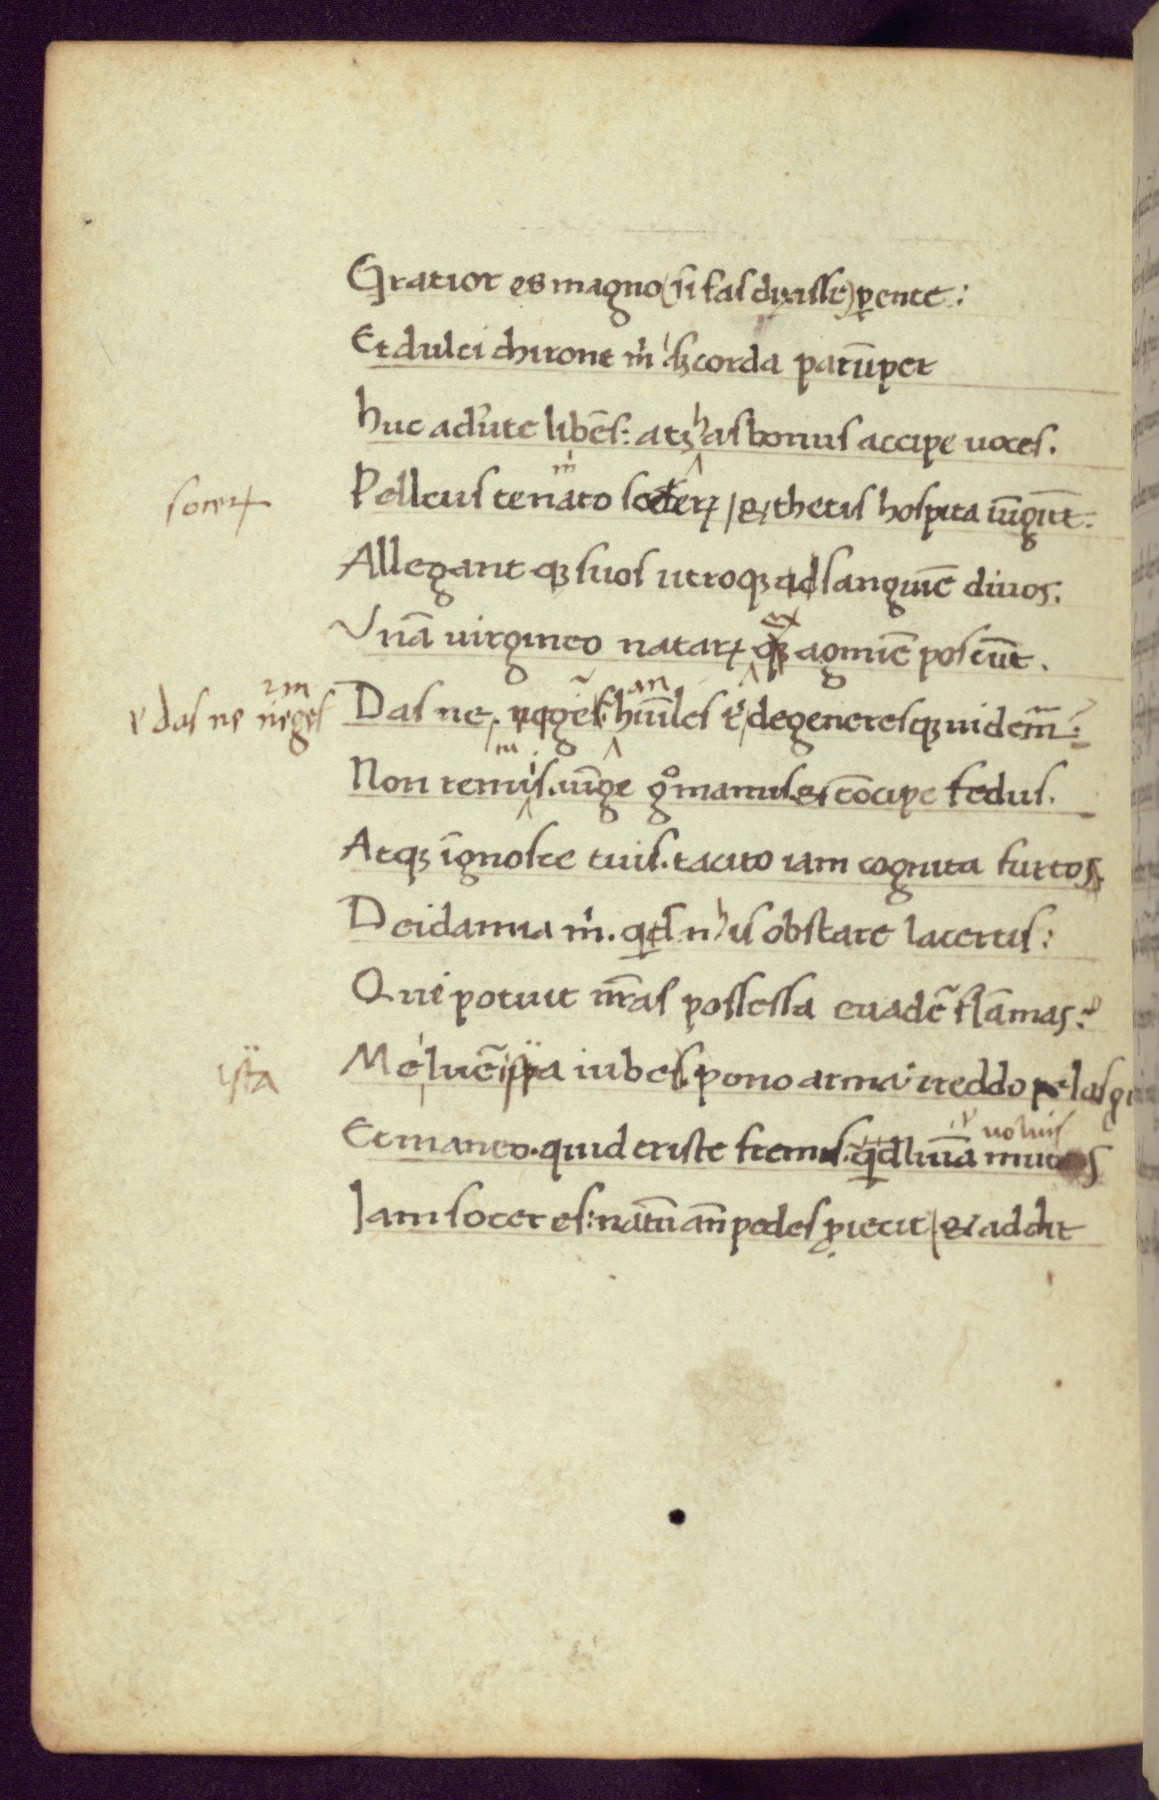 Gratior es magno (si fas dixisse) ꝑente:
Et dulci chirone m̍ ſꝫ corda parūꝑ
huc aduͥte libēs: atꝫ has bonus accipe uoces.
soceꝝ
Pelleus te nato soceꝝ / & thetis hospita iūgūt:
Allegant qꝫ suos utroqꝫ ad sanguīe diuos.
Vnā uirgineo nataꝝ ex agmīe poscūt.
v das ne neges
Das ne. an hūiles t̍ degeneresqꝫ uidem̄?
Non renuis. iūge g̊ manus. & cōcipe fedus.
Atqꝫ ignosce tuis. tacito iam cognita furto
Deidamia m̍. qd n̍ his obstare lacertis:
Que potuit nr̄as possessa euadē flāmas:
ista
Me luē ista iubes. pono arma: reddo pelasgi
uoluis
Et maneo. quid triste fremis. qd luīa
Iam socer es: natū an̄ pedes ꝓiecit / & addit